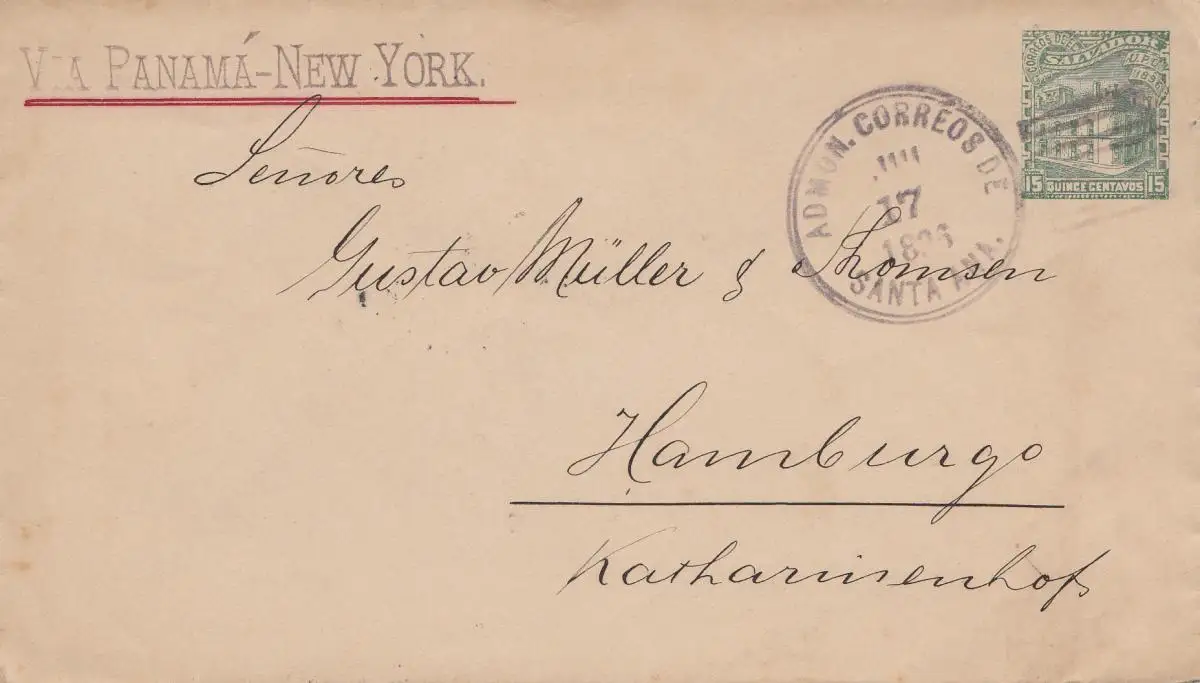 VIA PANAMÁ-NEW YORK.
CORREOS DE EL
SALVADOR
U.P.U.
15 QUINCE CENTAVOS 15
ADMON. CORREOS DE
17
1896
SANTA ANA.
Señores
Gustav Müller & Thomsen
Hamburgo
Katharinenhof